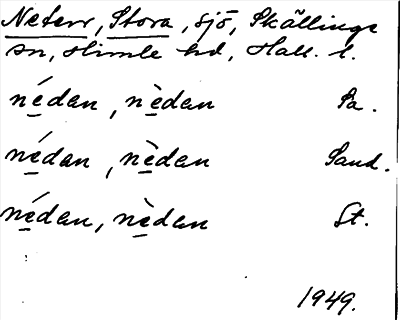 Neterr, Stora, sjö, Skällinge
sn, Himle hd, Hall. l.
né̱dan, nè̱dan Sa.
né̱dan, nè̱dan Sand.
né̱dan, nè̱dan St.
1949.